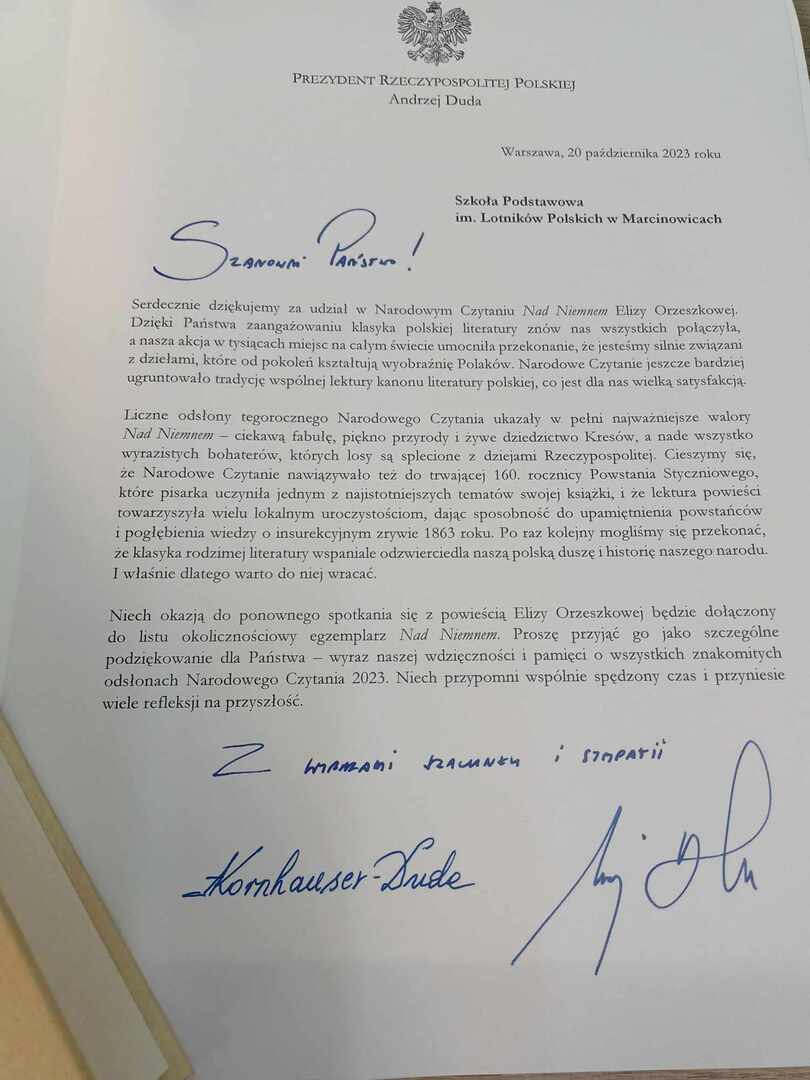 PREZYDENT RZECZYPOSPOLITEJ POLSKIEJ
Andrzej Duda
Warszawa, 20 października 2023 roku
Szkoła Podstawowa
im. Lotników Polskich w Marcinowicach
Szanowni Państwo!
Serdecznie dziękujemy za udział w Narodowym Czytaniu Nad Niemnem Elizy Orzeszkowej.
Dzięki Państwa zaangażowaniu klasyka polskiej literatury znów nas wszystkich połączyła,
a nasza akcja w tysiącach miejsc na całym świecie umocniła przekonanie, że jesteśmy silnie związani
z dziełami, które od pokoleń kształtują wyobraźnię Polaków. Narodowe Czytanie jeszcze bardziej
ugruntowało tradycję wspólnej lektury kanonu literatury polskiej, co jest dla nas wielką satysfakcją.
Liczne odsłony tegorocznego Narodowego Czytania ukazały w pełni najważniejsze walory
Nad Niemnem – ciekawą fabułę, piękno przyrody i żywe dziedzictwo Kresów, a nade wszystko
wyrazistych bohaterów, których losy są splecione z dziejami Rzeczypospolitej. Cieszymy się,
że Narodowe Czytanie nawiązywało też do trwającej 160. rocznicy Powstania Styczniowego,
które pisarka uczyniła jednym z najistotniejszych tematów swojej książki, i że lektura powieści
towarzyszyła wielu lokalnym uroczystościom, dając sposobność do upamiętnienia powstańców
i pogłębienia wiedzy o insurekcyjnym zrywie 1863 roku. Po raz kolejny mogliśmy się przekonać,
że klasyka rodzimej literatury wspaniale odzwierciedla naszą polską duszę i historię naszego narodu.
I właśnie dlatego warto do niej wracać.
Niech okazją do ponownego spotkania się z powieścią Elizy Orzeszkowej będzie dołączony
do listu okolicznościowy egzemplarz Nad Niemnem. Proszę przyjąć go jako szczególne
podziękowanie dla Państwa – wyraz naszej wdzięczności i pamięci o wszystkich znakomitych
odsłonach Narodowego Czytania 2023. Niech przypomni wspólnie spędzony czas i przyniesie
wiele refleksji na przyszłość.
Z wyrazami szacunku i sympatii
Kornhauser-Duda